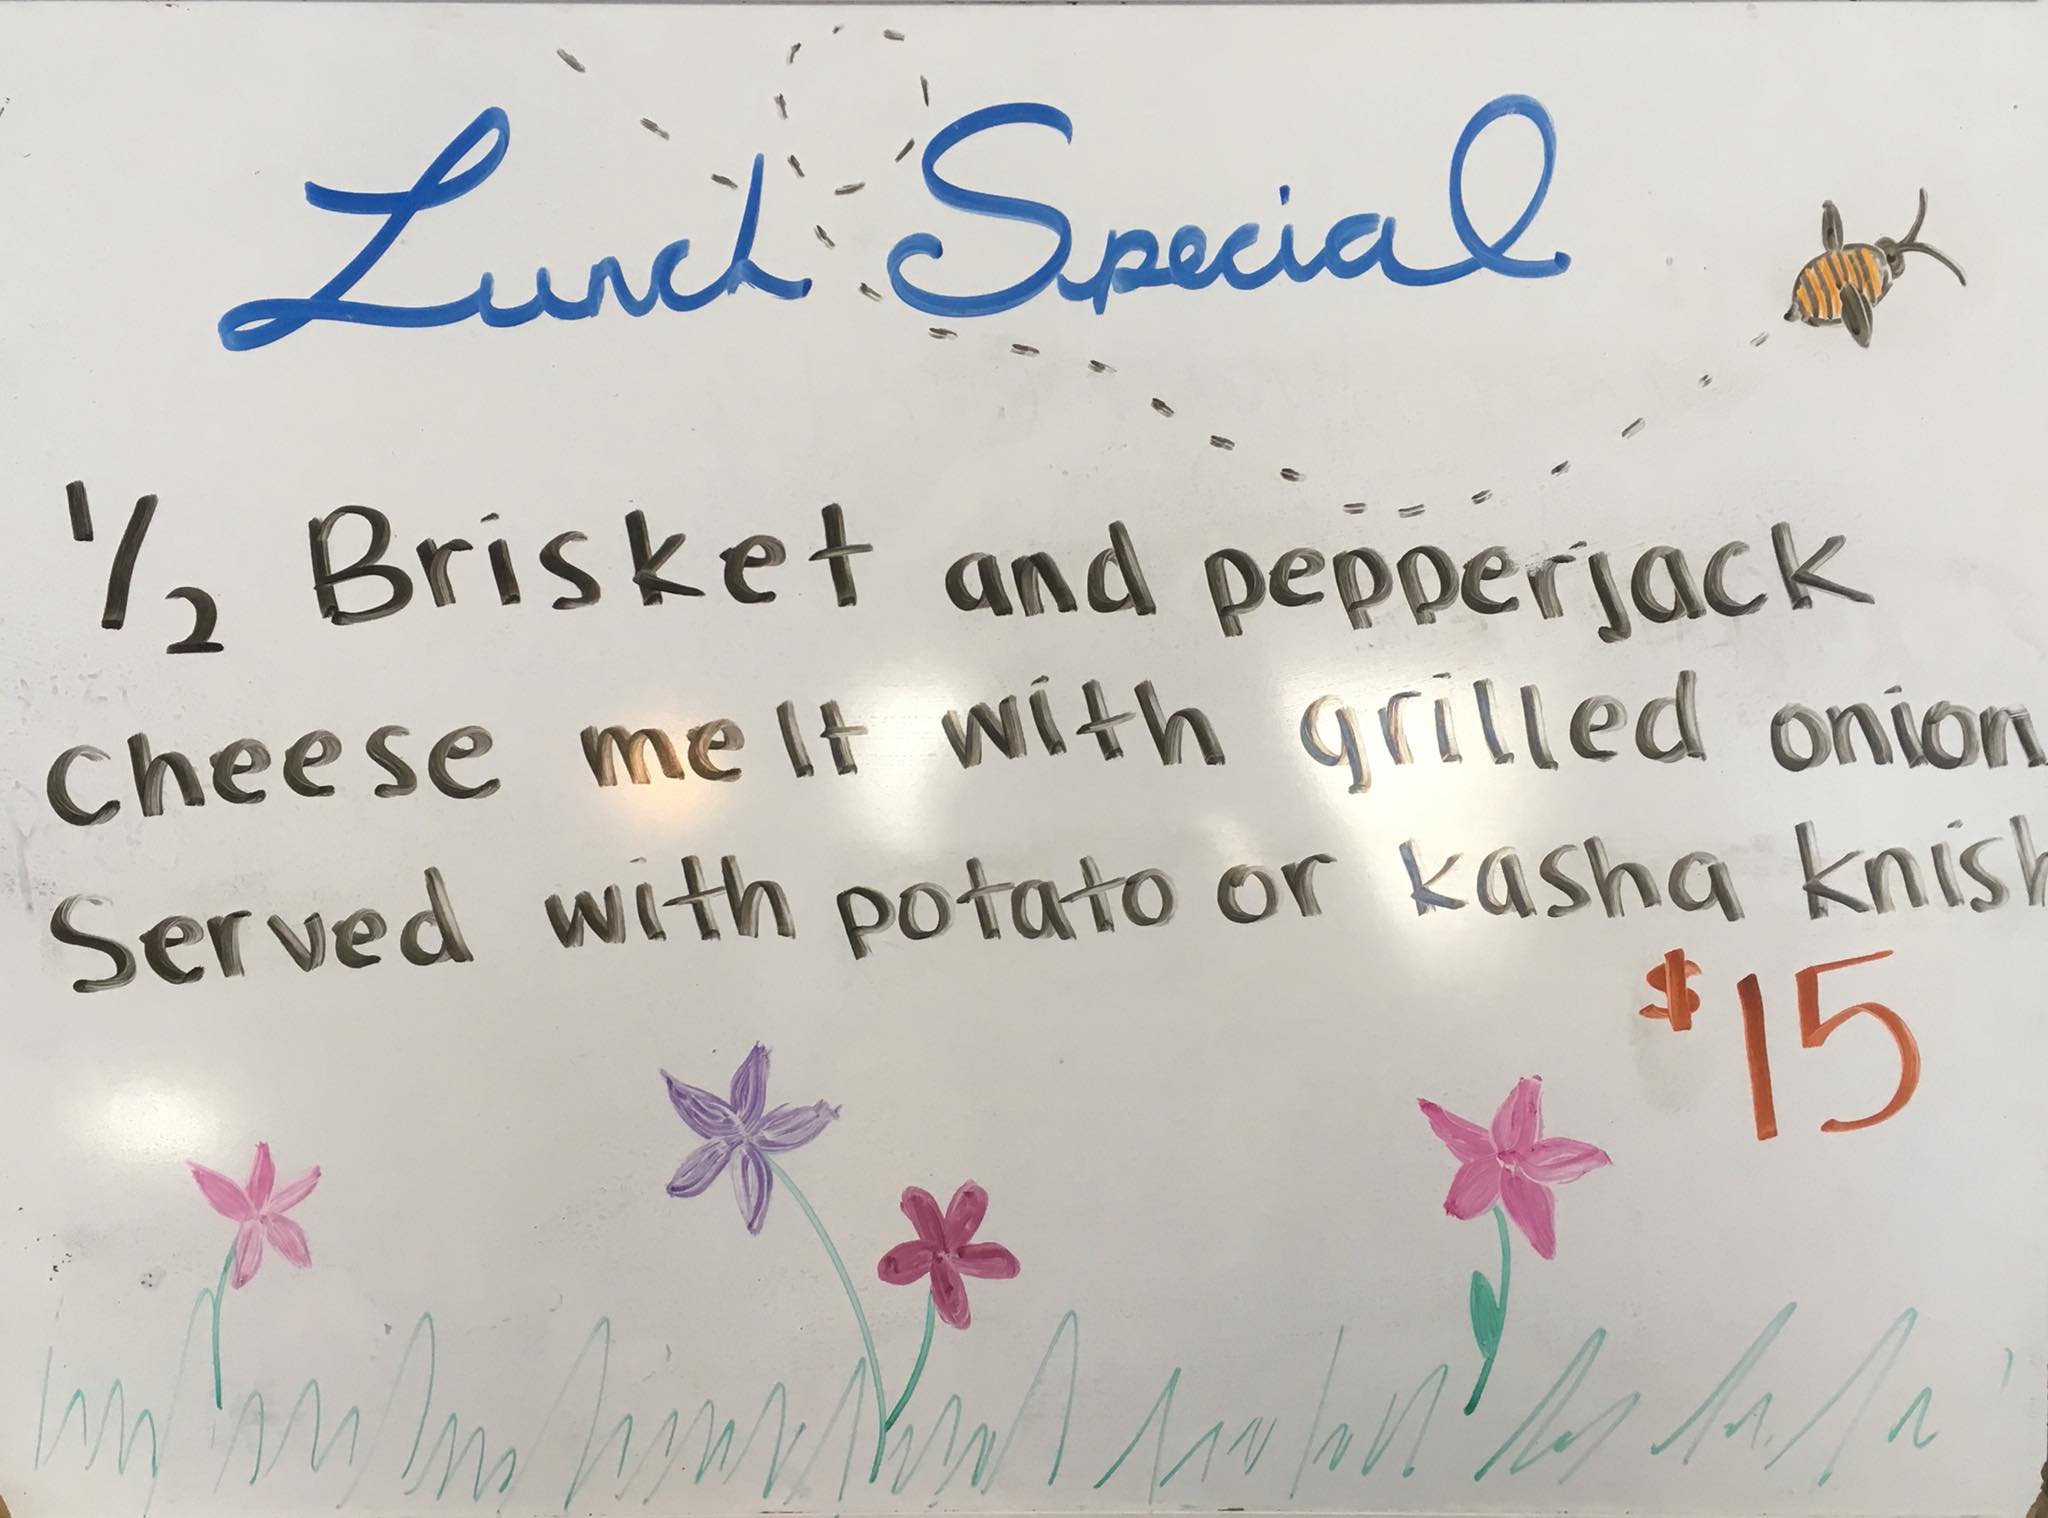 Lunch Special
1/2 Brisket and pepperjack
cheese melt with grilled onion
Served with potato or kasha knish
$15